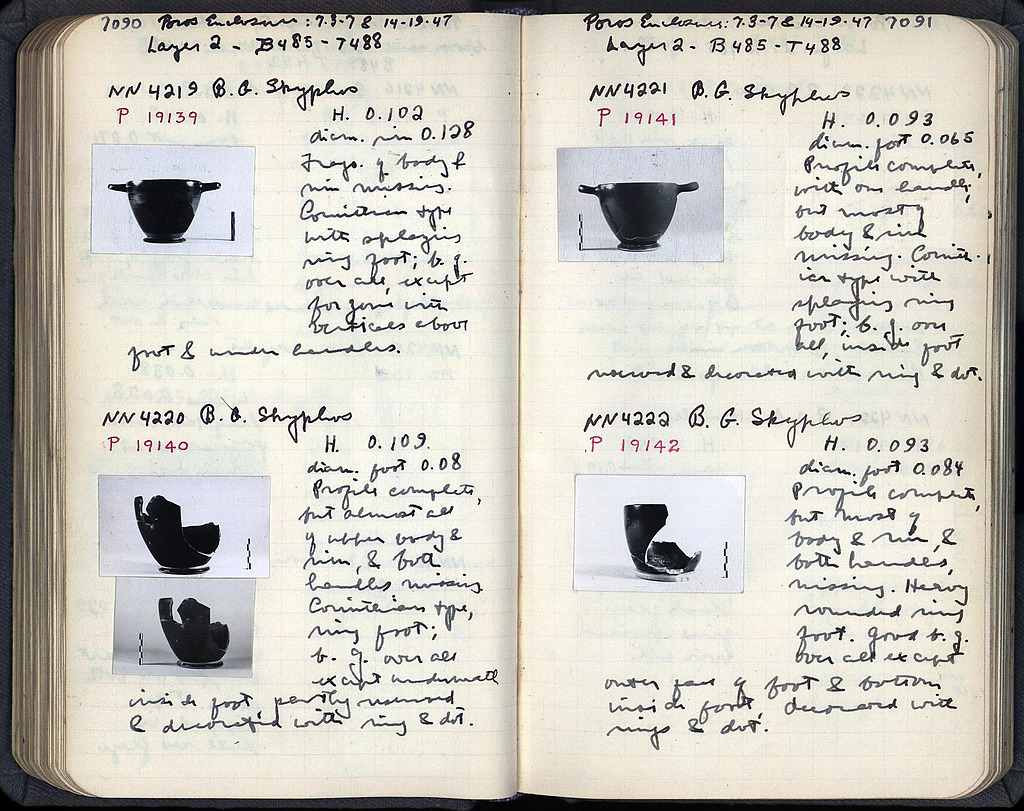 7090 Poros Enclosure: 7.3-7 & 14-19-47
Layer 2 - B485 - T488
NN 4219 B. G. Skyphos
P 19139
H. 0.102
diam. rim 0.128
Frags. of body &
rim missing.
Corinthian type
with splaying
ring foot; b. g.
over all, except
for zone with
verticals above
foot & under handles.
NN 4220 B. G. Skyphos
P 19140
H. 0.109.
diam. foot 0.08
Profile complete,
but almost all
of upper body &
rim, & both
handles missing
Corinthian type,
ring foot;
b. g. over all
except underneath
inside foot partly reserved
& decorated with ring & dot.
Poros Enclosure: 7.3-7 & 14-19-47 7091
Layer 2 - B485 - T488
NN 4221 B. G. Skyphos
P 19141
H. 0.093
diam. foot 0.065
Profile complete,
with one handle,
but most of
body & rim
missing. Corinth-
ian type with
splaying ring
foot; b. g. over
all, inside foot
reserved & decorated with ring & dot.
NN 4222 B. G. Skyphos
P 19142
H. 0.093
diam. foot 0.084
Profile complete
but most of
body & rim, &
both handles,
missing. Heavy
rounded ring
foot. Good b. g.
over all except
outer face of foot & bottom
inside foot, decorated with
rings & dot.